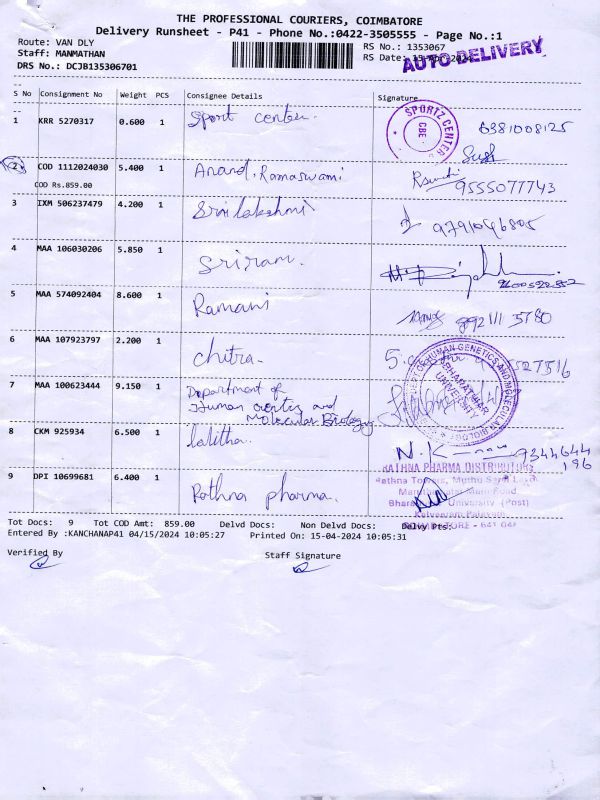 THE PROFESSIONAL COURIERS, COIMBATORE
Delivery Runsheet - P41 - Phone No.:0422-3505555 - Page No.:1
Route: VAN DLY
RS No.: 1353067
Staff: MANMATHAN
RS Date: 15-Apr-2024
AUTO DELIVERY
DRS No.: DCJB135306701
S No Consignment No Weight PCS Consignee Details Signature
1 KRR 5270317 0.600 1 Sport center. SPORTZ CENTER CBE 6381008125
2 COD 1112024030 5.400 1 Anand, Ramaswami 9555077743
COD Rs.859.00
3 IXM 506237479 4.200 1 Srilakshmi
4 MAA 106030206 5.850 1 Sriram.
5 MAA 574092404 8.600 1 Ramani
6 MAA 107923797 2.200 1 chitra.
7 MAA 100623444 9.150 1 Department of
Human and
Molecular Biology
OF HUMAN GENETICS AND MOLECULAR BIOLOGY
BHARATHIAR
UNIVERSITY
8 CKM 925934 6.500 1 lalitha. N.K 9344644
196
9 DPI 10699681 6.400 1 Rathna pharma.
RATHNA PHARMA DISTRIBUTORS
Rathna Towers, Muthu
Main Road
University (Post)
Tot Docs: 9 Tot COD Amt: 859.00 Delvd Docs: Non Delvd Docs: Delvy Pts:
COIMBATORE - 641 046
Entered By :KANCHANAP41 04/15/2024 10:05:27 Printed On: 15-04-2024 10:05:31
Verified By Staff Signature